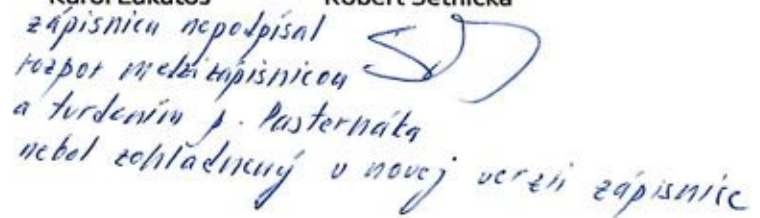 Karol Lakatoš Robert Setnička
zápisnicu nepodpísal
rozpor medzi zápisnicou
a tvrdením p. Pasternáka
nebol zohľadnený v novej verzii zápisnice